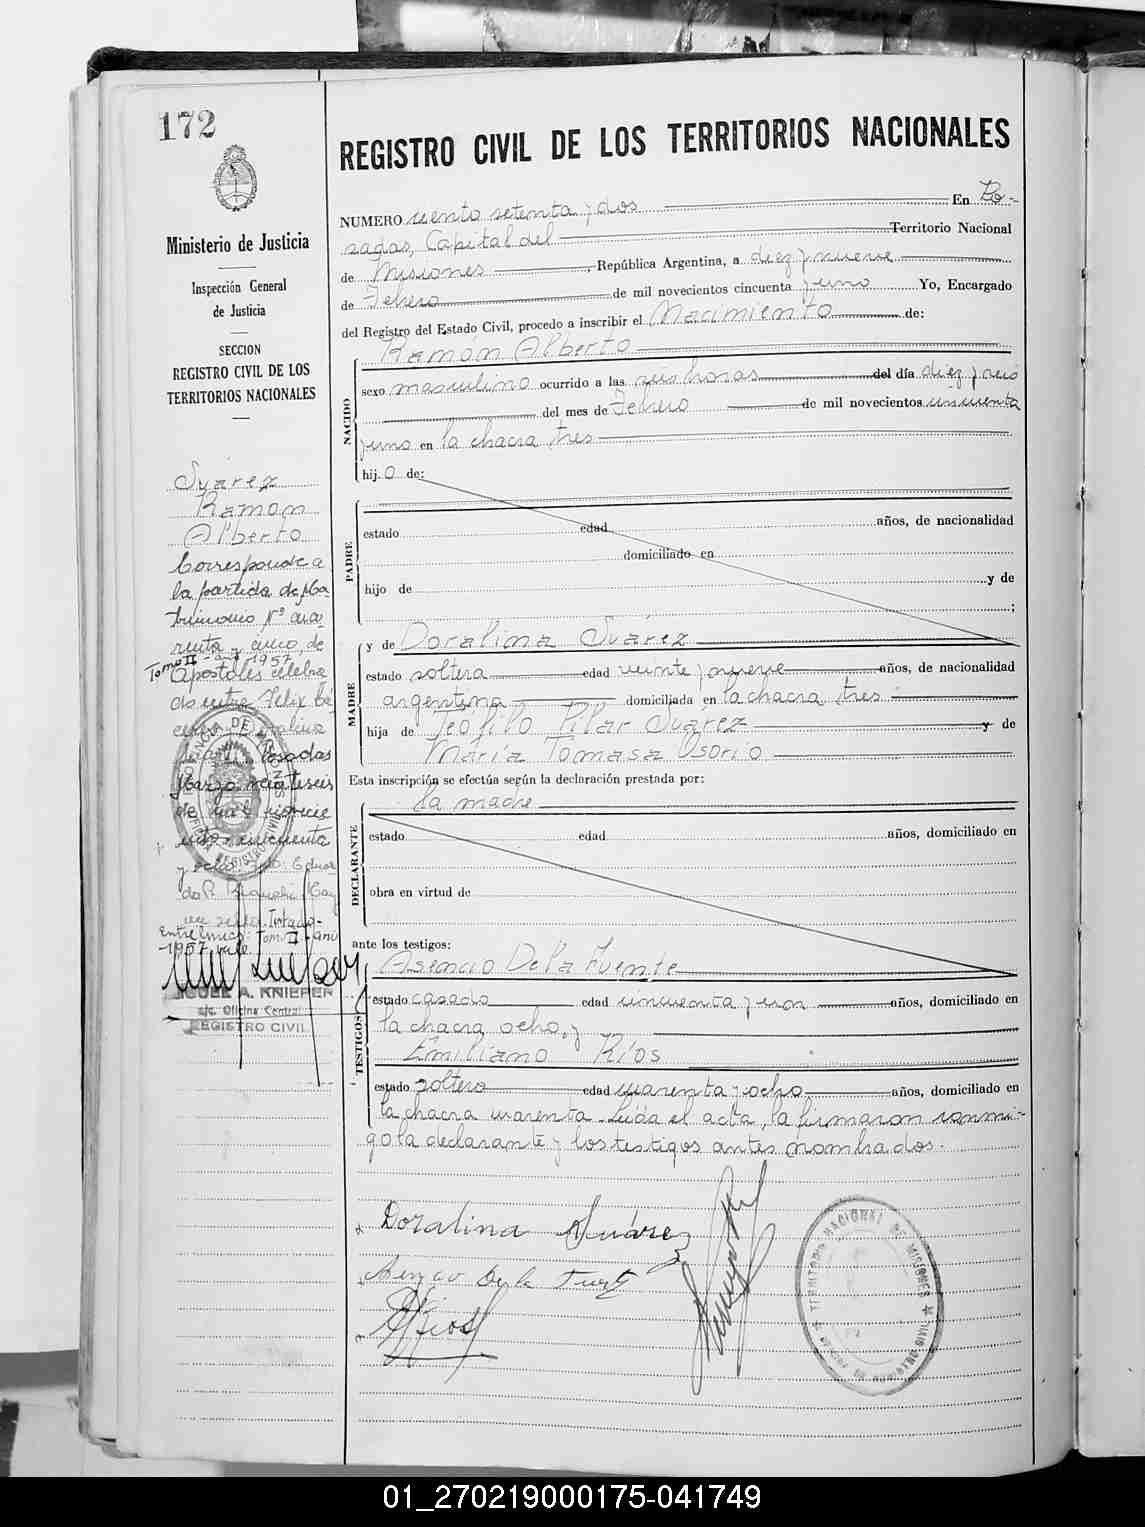 172
Ministerio de Justicia
Inspección General
de Justicia
SECCION
REGISTRO CIVIL DE LOS
TERRITORIOS NACIONALES
Suárez
Ramon
Alberto
Corresponde a
la partida de Ma-
trimonio Nº cua
renta y cinco, de
Tomo II - año 1957
Apostoles celebra
do entre Felix
Posadas
Marzo veintiseis
de mil novecie
ntos cincuenta
y ocho.
Entre lineas: Tomo II - año
1957 vale
MIGUEL A. KNIEPER
a/c. Oficina Central
REGISTRO CIVIL
REGISTRO CIVIL DE LOS TERRITORIOS NACIONALES
NUMERO ciento setenta y dos En Po-
sadas, Capital del Territorio Nacional
de Misiones, República Argentina, a diez y nueve
de Febrero de mil novecientos cincuenta y uno Yo, Encargado
del Registro del Estado Civil, procedo a inscribir el Nacimiento de:
NACIDO
Ramón Alberto
sexo masculino ocurrido a las seis horas del día diez y seis
del mes de Febrero de mil novecientos cincuenta
y uno en la chacra tres
hij o de:
PADRE
estado edad años, de nacionalidad
domiciliado en
hijo de y de
;
MADRE
y de Doralina Suárez
estado soltera edad veinte y nueve años, de nacionalidad
argentina domiciliada en la chacra tres
hija de Teófilo Pilar Suárez y de
María Tomasa Osorio
Esta inscripción se efectúa según la declaración prestada por:
DECLARANTE
la madre
estado edad años, domiciliado en
obra en virtud de
ante los testigos:
TESTIGOS
Asencio De la Fuente
estado casado edad cincuenta y un años, domiciliado en
la chacra ocho, y
Emiliano Ríos
estado soltero edad cuarenta y ocho años, domiciliado en
la chacra cuarenta. Leída el acta, la firmaron conmi-
go la declarante y los testigos antes nombrados.
Doralina Suárez
De la
TERRITORIO NACIONAL DE MISIONES
01_270219000175-041749